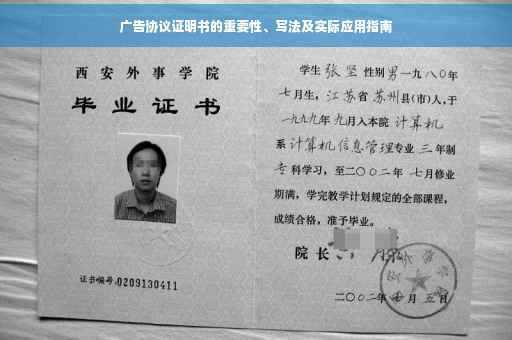 广告协议证明书的重要性、写法及实际应用指南
西安外事学院
毕业证书
证书编号:0209130411
学生张坚性别男一九八〇年
七月生,江苏省苏州县(市)人,于
一九九九年九月入本院计算机
系计算机信息管理专业三年制
专科学习,至二〇〇二年七月修业
期满,学完教学计划规定的全部课程,
成绩合格,准予毕业。
院长
二〇〇二年 月五日